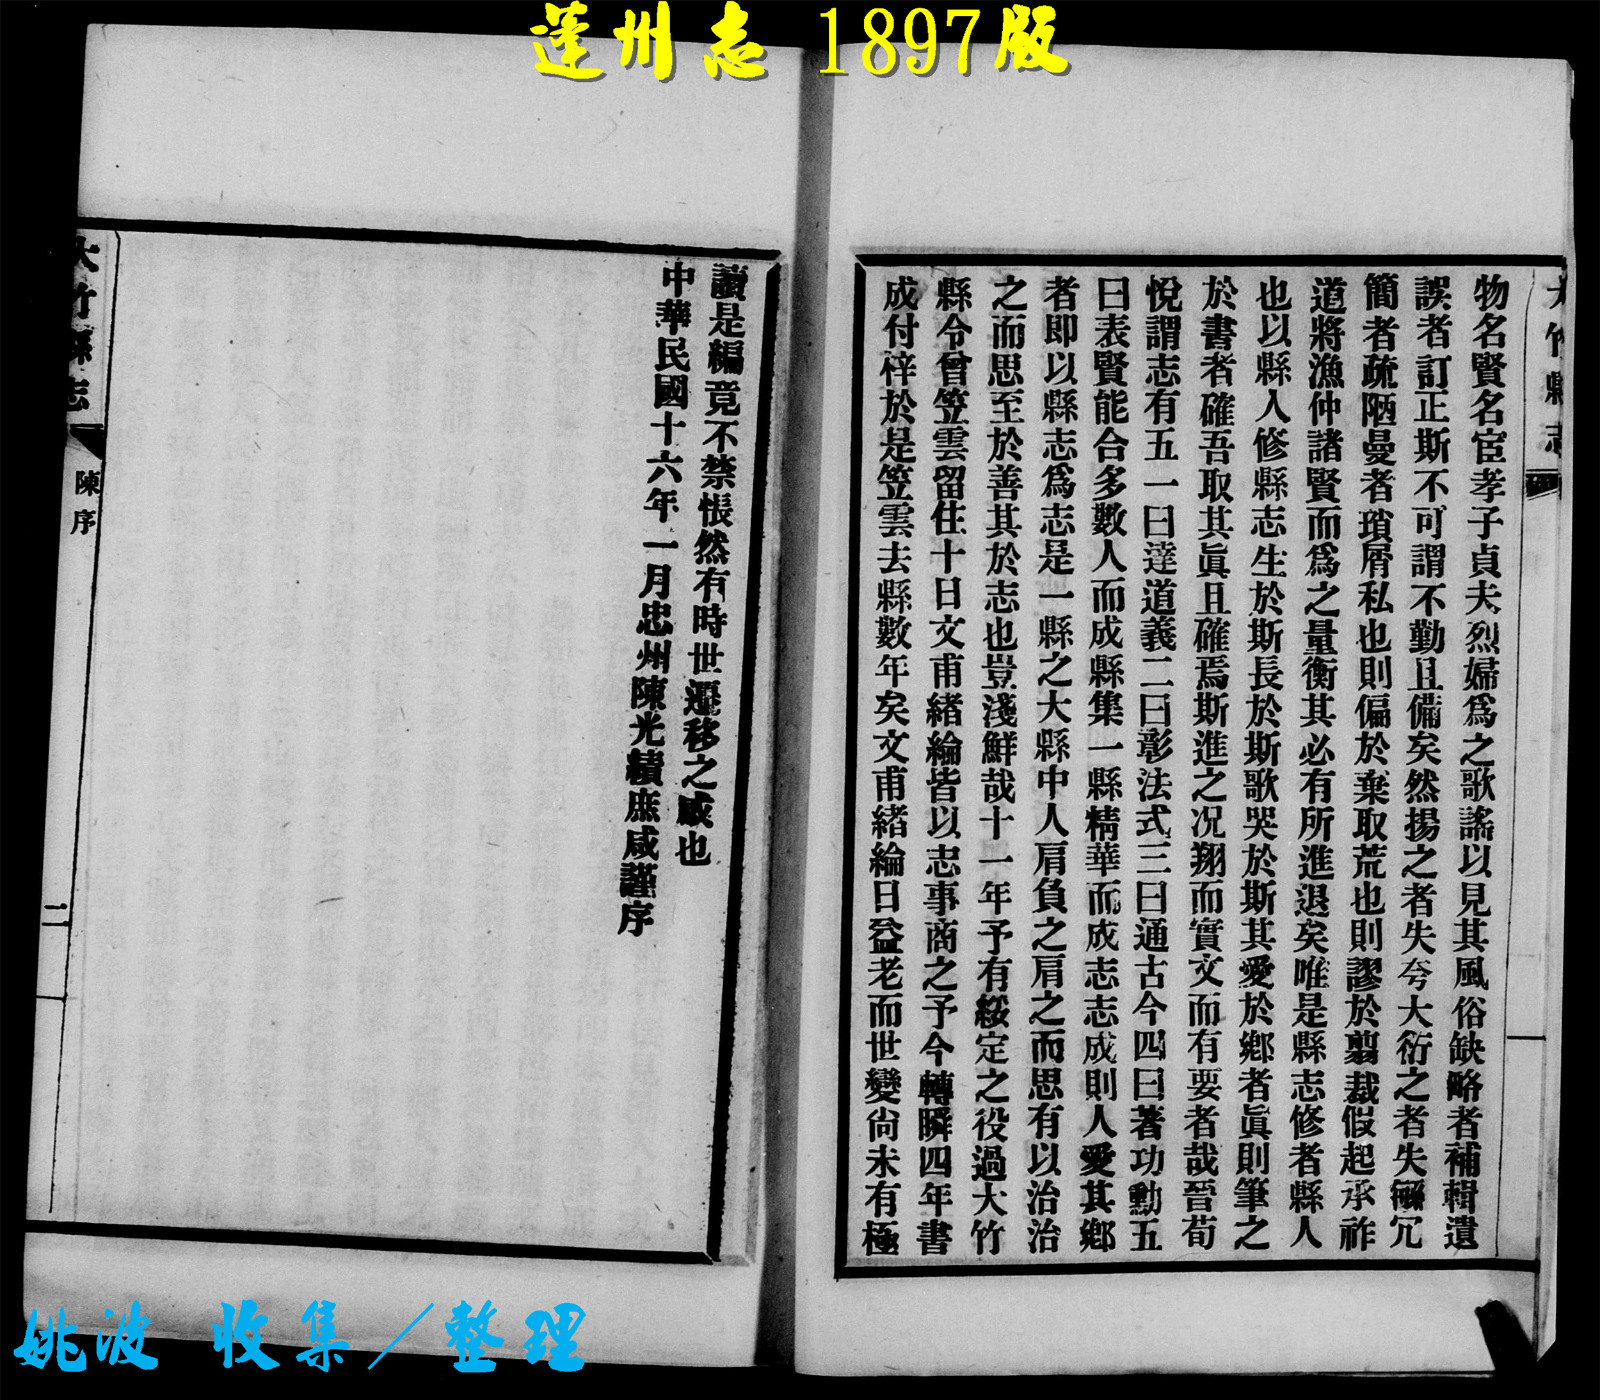 蓬州志 1897版
大竹縣志
物名賢名宦孝子貞夫烈婦爲之歌謠以見其風俗缺略者補輯遺
誤者訂正斯不可謂不勤且備矣然揚之者失夸大衍之者失冗
簡者疏陋曼者瑣屑私也則偏於棄取荒也則謬於翦裁假起承祚
道將漁仲諸賢而爲之量衡其必有所進退矣唯是縣志修者縣人
也以縣人修縣志生於斯長於斯歌哭於斯其愛於鄕者眞則筆之
於書者確吾取其眞且確焉斯進之况翔而實文而有要者哉晉荀
悅謂志有五一曰達道義二曰彰法式三曰通古今四曰著功勳五
曰表賢能合多數人而成縣集一縣精華而成志志成則人愛其鄕
者即以縣志爲志是一縣之大縣中人肩負之肩之而思有以治治
之而思至於善其於志也豈淺鮮哉十一年予有綏定之役過大竹
縣令曾笠雲留住十日文甫緒綸皆以志事商之予今轉瞬四年書
成付梓於是笠雲去縣數年矣文甫緒綸日益老而世變尙未有極
讀是編竟不禁悵然有時世遷移之感也
中華民國十六年一月忠州陳光績庶咸謹序
大竹縣志
陳序
二
姚波 收集／整理